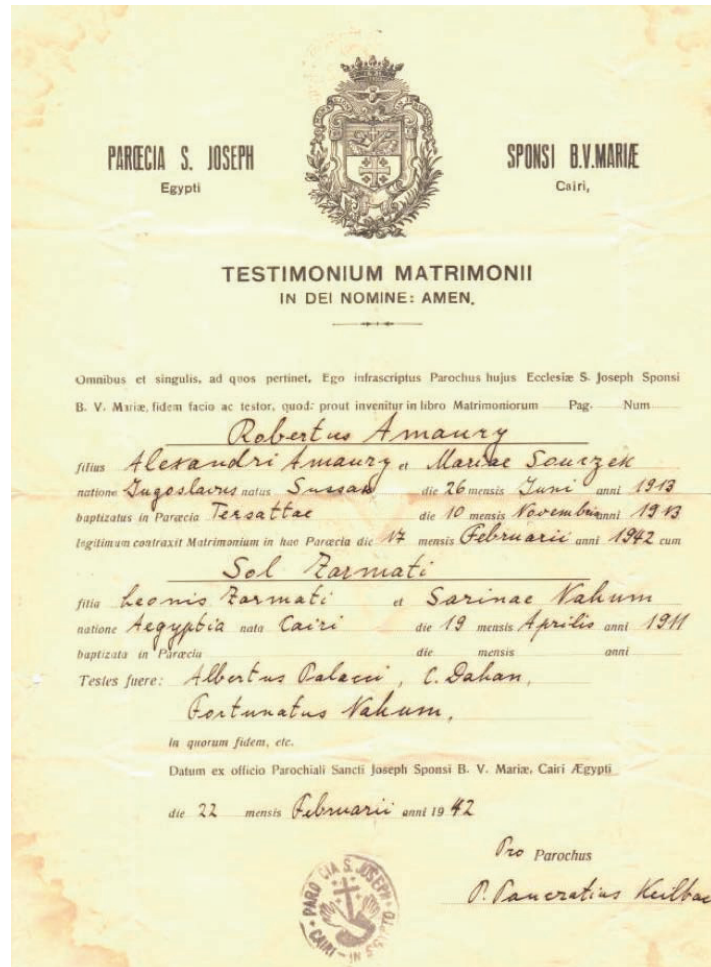 PARŒCIA S. JOSEPH
Egypti
SPONSI B.V.MARIÆ
Cairi,
TESTIMONIUM MATRIMONII
IN DEI NOMINE: AMEN.
Omnibus et singulis, ad quos pertinet, Ego infrascriptus Parochus hujus Ecclesiæ S. Joseph Sponsi
B. V. Mariæ, fidem facio ac testor, quod: prout invenitur in libro Matrimoniorum Pag. Num
Robertus Amaury
filius Alexandri Amaury et Mariae Souczek
natione Jugoslavus natus Sussak die 26 mensis Juni anni 1913
baptizatus in Parœcia Tersattae die 10 mensis Novembris anni 1913
legitimum contraxit Matrimonium in hac Parœcia die 17 mensis Februarii anni 1942 cum
Sol Zarmati
filia Leonis Zarmati et Sarinae Nahum
natione Aegyptia nata Cairi die 19 mensis Aprilis anni 1911
baptizata in Parœcia die mensis anni
Testes fuere: Albertus Palacci, C. Dahan,
Fortunatus Nahum,
in quorum fidem, etc.
Datum ex officio Parochiali Sancti Joseph Sponsi B. V. Mariæ, Cairi Ægypti
die 22 mensis Februarii anni 1942
Pro Parochus
P. Pancratius
PAROECIA S. JOSEPH
CAIRI - IN